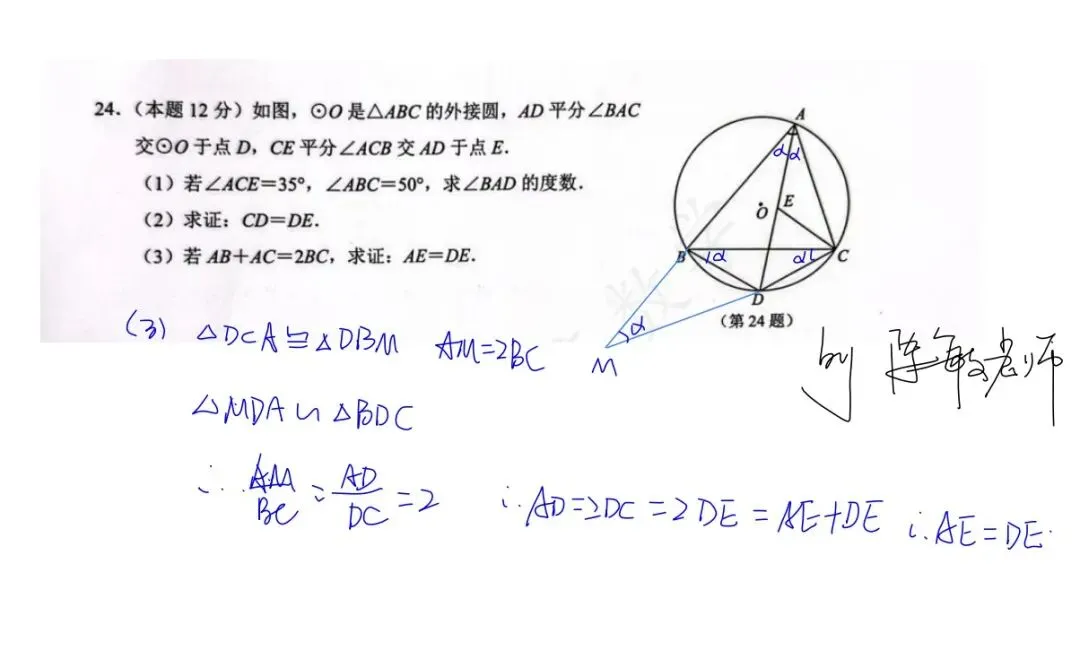 24.（本题 12 分）如图，⊙O 是△ABC 的外接圆，AD 平分∠BAC
交⊙O 于点 D，CE 平分∠ACB 交 AD 于点 E.
（1）若∠ACE=35°，∠ABC=50°，求∠BAD 的度数.
（2）求证：CD=DE.
（3）若 AB+AC=2BC，求证：AE=DE.
A
α α
O E
B α α C
D
（第 24 题）
α
M
(3) △DCA≌△DBM AM=2BC
by 陈敏老师
△MDA∽△BDC
∴ AM/BC = AD/DC = 2 ∴AD=2DC=2DE=AE+DE ∴AE=DE.